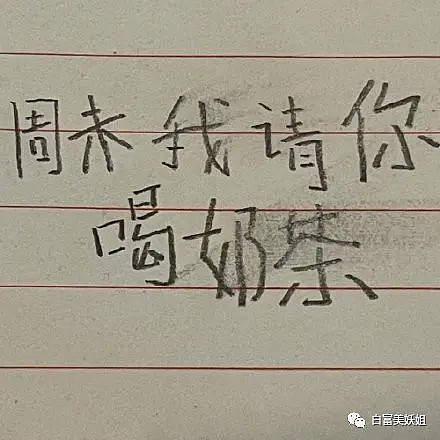 周末我请你
喝奶茶
白富美妖姐